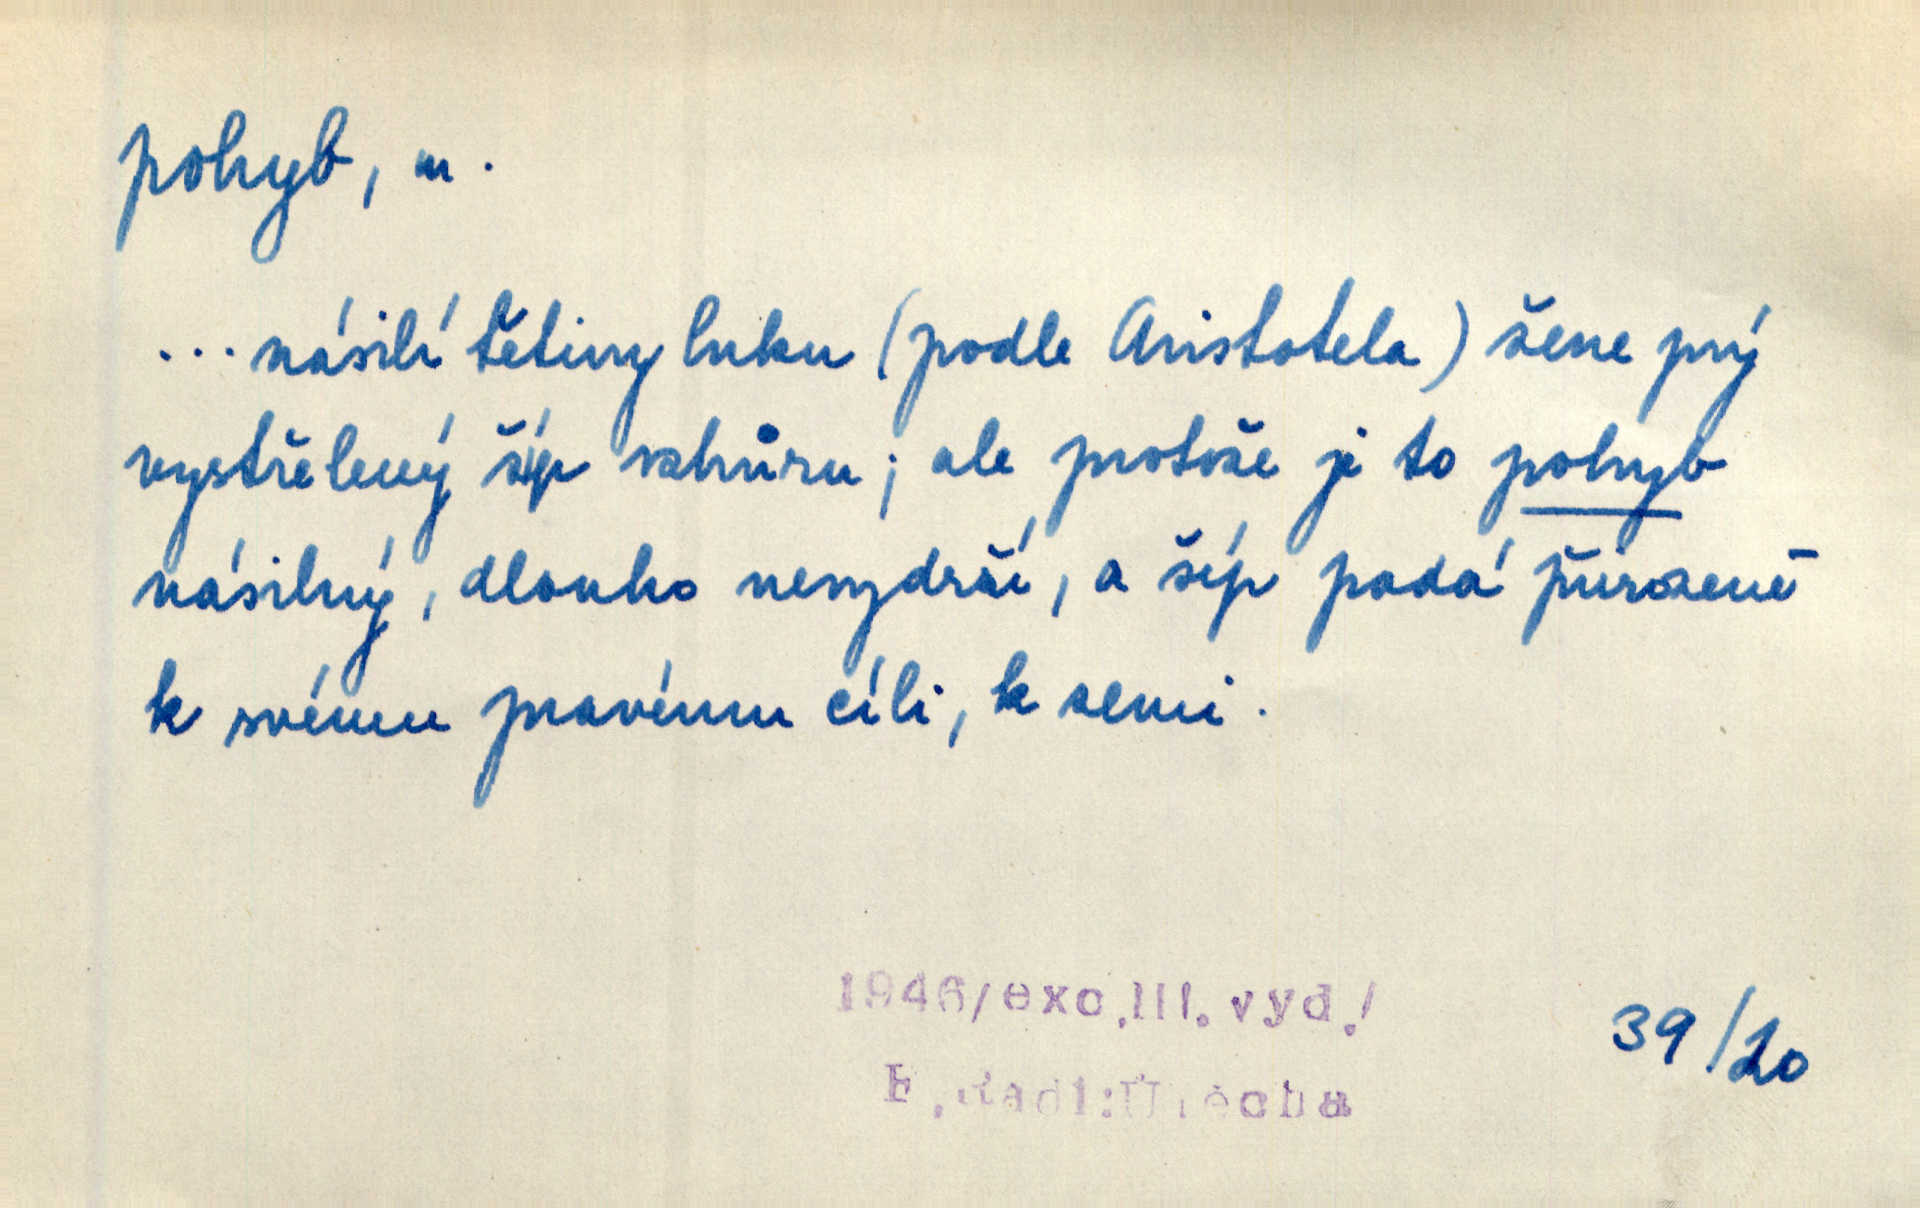 pohyb, m.
...násilí tětivy luku (podle Aristotela) žene prý
vystřelený šíp vzhůru; ale protože je to pohyb
násilný, dlouho nevydrží, a šíp padá přirozeně
k svému pravému cíli, k zemi.
1946/exc.III.vyd./
E.Rádl:Útěcha
39/20